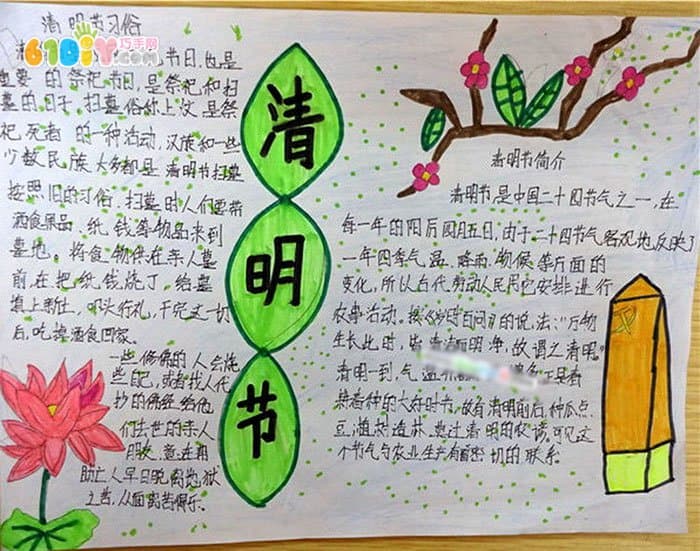 清明节习俗
61DIY巧手网
.com
节日,也是
重要 的祭祀节日,是祭祀和扫
墓的日子,扫墓俗称上坟,是祭
祀死者 的一种活动,汉族和一些
少数民族大多都是清明节扫墓
按照旧的习俗,扫墓时人们要带
酒食果品、纸钱等物品来到
墓地。将食物供在亲人墓
前,在把纸钱烧了,给墓
填上新土,叩头行礼,干完这一切
后,吃掉酒食回家。
一些修佛的人会烧
些自己,或者找人代
抄的佛经给他
们去世的亲人
朋友,意在期
助亡人早日脱离地狱
之苦,从而离苦得乐。
清
明
节
清明节简介
清明节,是中国二十四节气之一,在
每一年的阳历四月五日,由于二十四节气客观地反映了
一年四季气温、降雨、物候等方面的
变化,所以古代劳动人民用它安排进行
农事活动。按《岁时百问》的说法:"万物
生长此时,皆清洁而明净,故谓之清明。"
清明一到,气温
春种的大好时节,故有"清明前后,种瓜点
豆,植树造林,莫过清明的农谚,可见这
个节气与农业生产有着密切的联系.